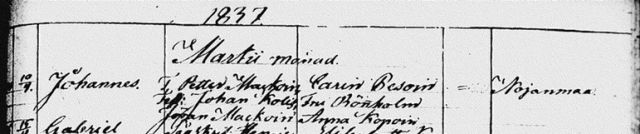 1837
Martii månad.
Johannes. Petter Mackoin Carin Pesoin = Nojanmaa
Johan Kolis Fru Rönholm
Johan Mackoin Anna Kopoin
Gabriel